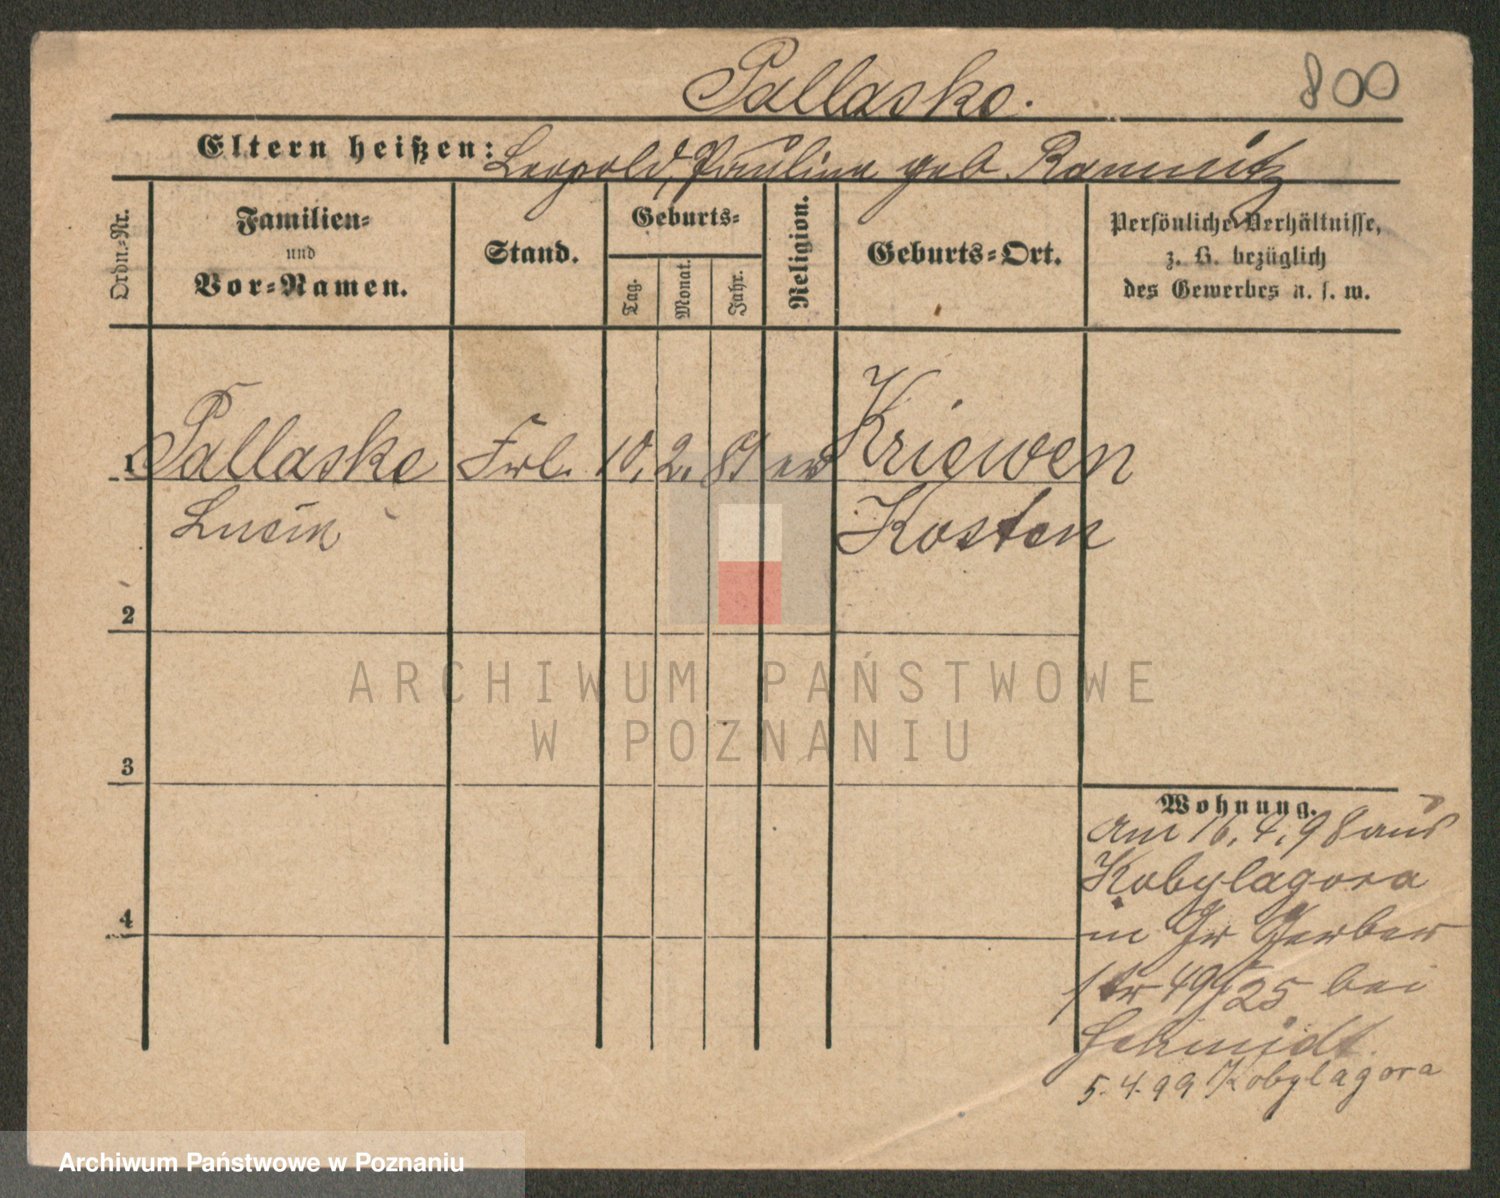 Pallaske.
800
Eltern heißen: Leopold, Paulina geb. Ramnitz
Ordn.-Nr.
Familien-
und
Vor-Namen.
Stand.
Geburts-
Tag.
Monat.
Jahr.
Religion.
Geburts-Ort.
Persönliche Verhältnisse,
z. B. bezüglich
des Gewerbes u. s. w.
1 Pallaske Frl. 10. 2. 81 ev Kriewen
Lucia Kosten
2
ARCHIWUM PAŃSTWOWE
W POZNANIU
3
Wohnung.
am 16. 4. 98 aus
Kobylagora
in Gr Gerber
str 49/25 bei
Schmidt.
5. 4. 99 Kobylagora
4
Archiwum Państwowe w Poznaniu